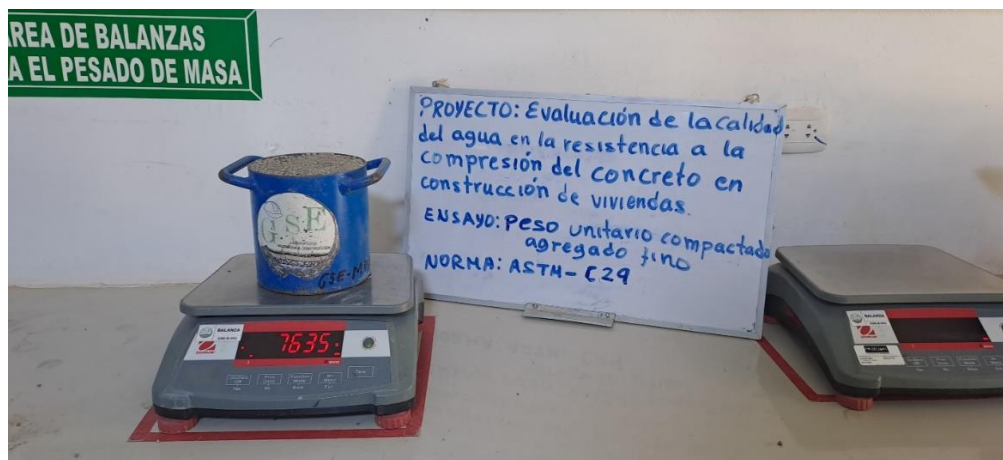 REA DE BALANZAS
A EL PESADO DE MASA
PROYECTO: Evaluación de la calidad
del agua en la resistencia a la
compresión del concreto en
construcción de viviendas.
ENSAYO: Peso unitario compactado
agregado fino
NORMA: ASTM-C29
GSE
GSE-M
7635
BALANZA
BALANZA